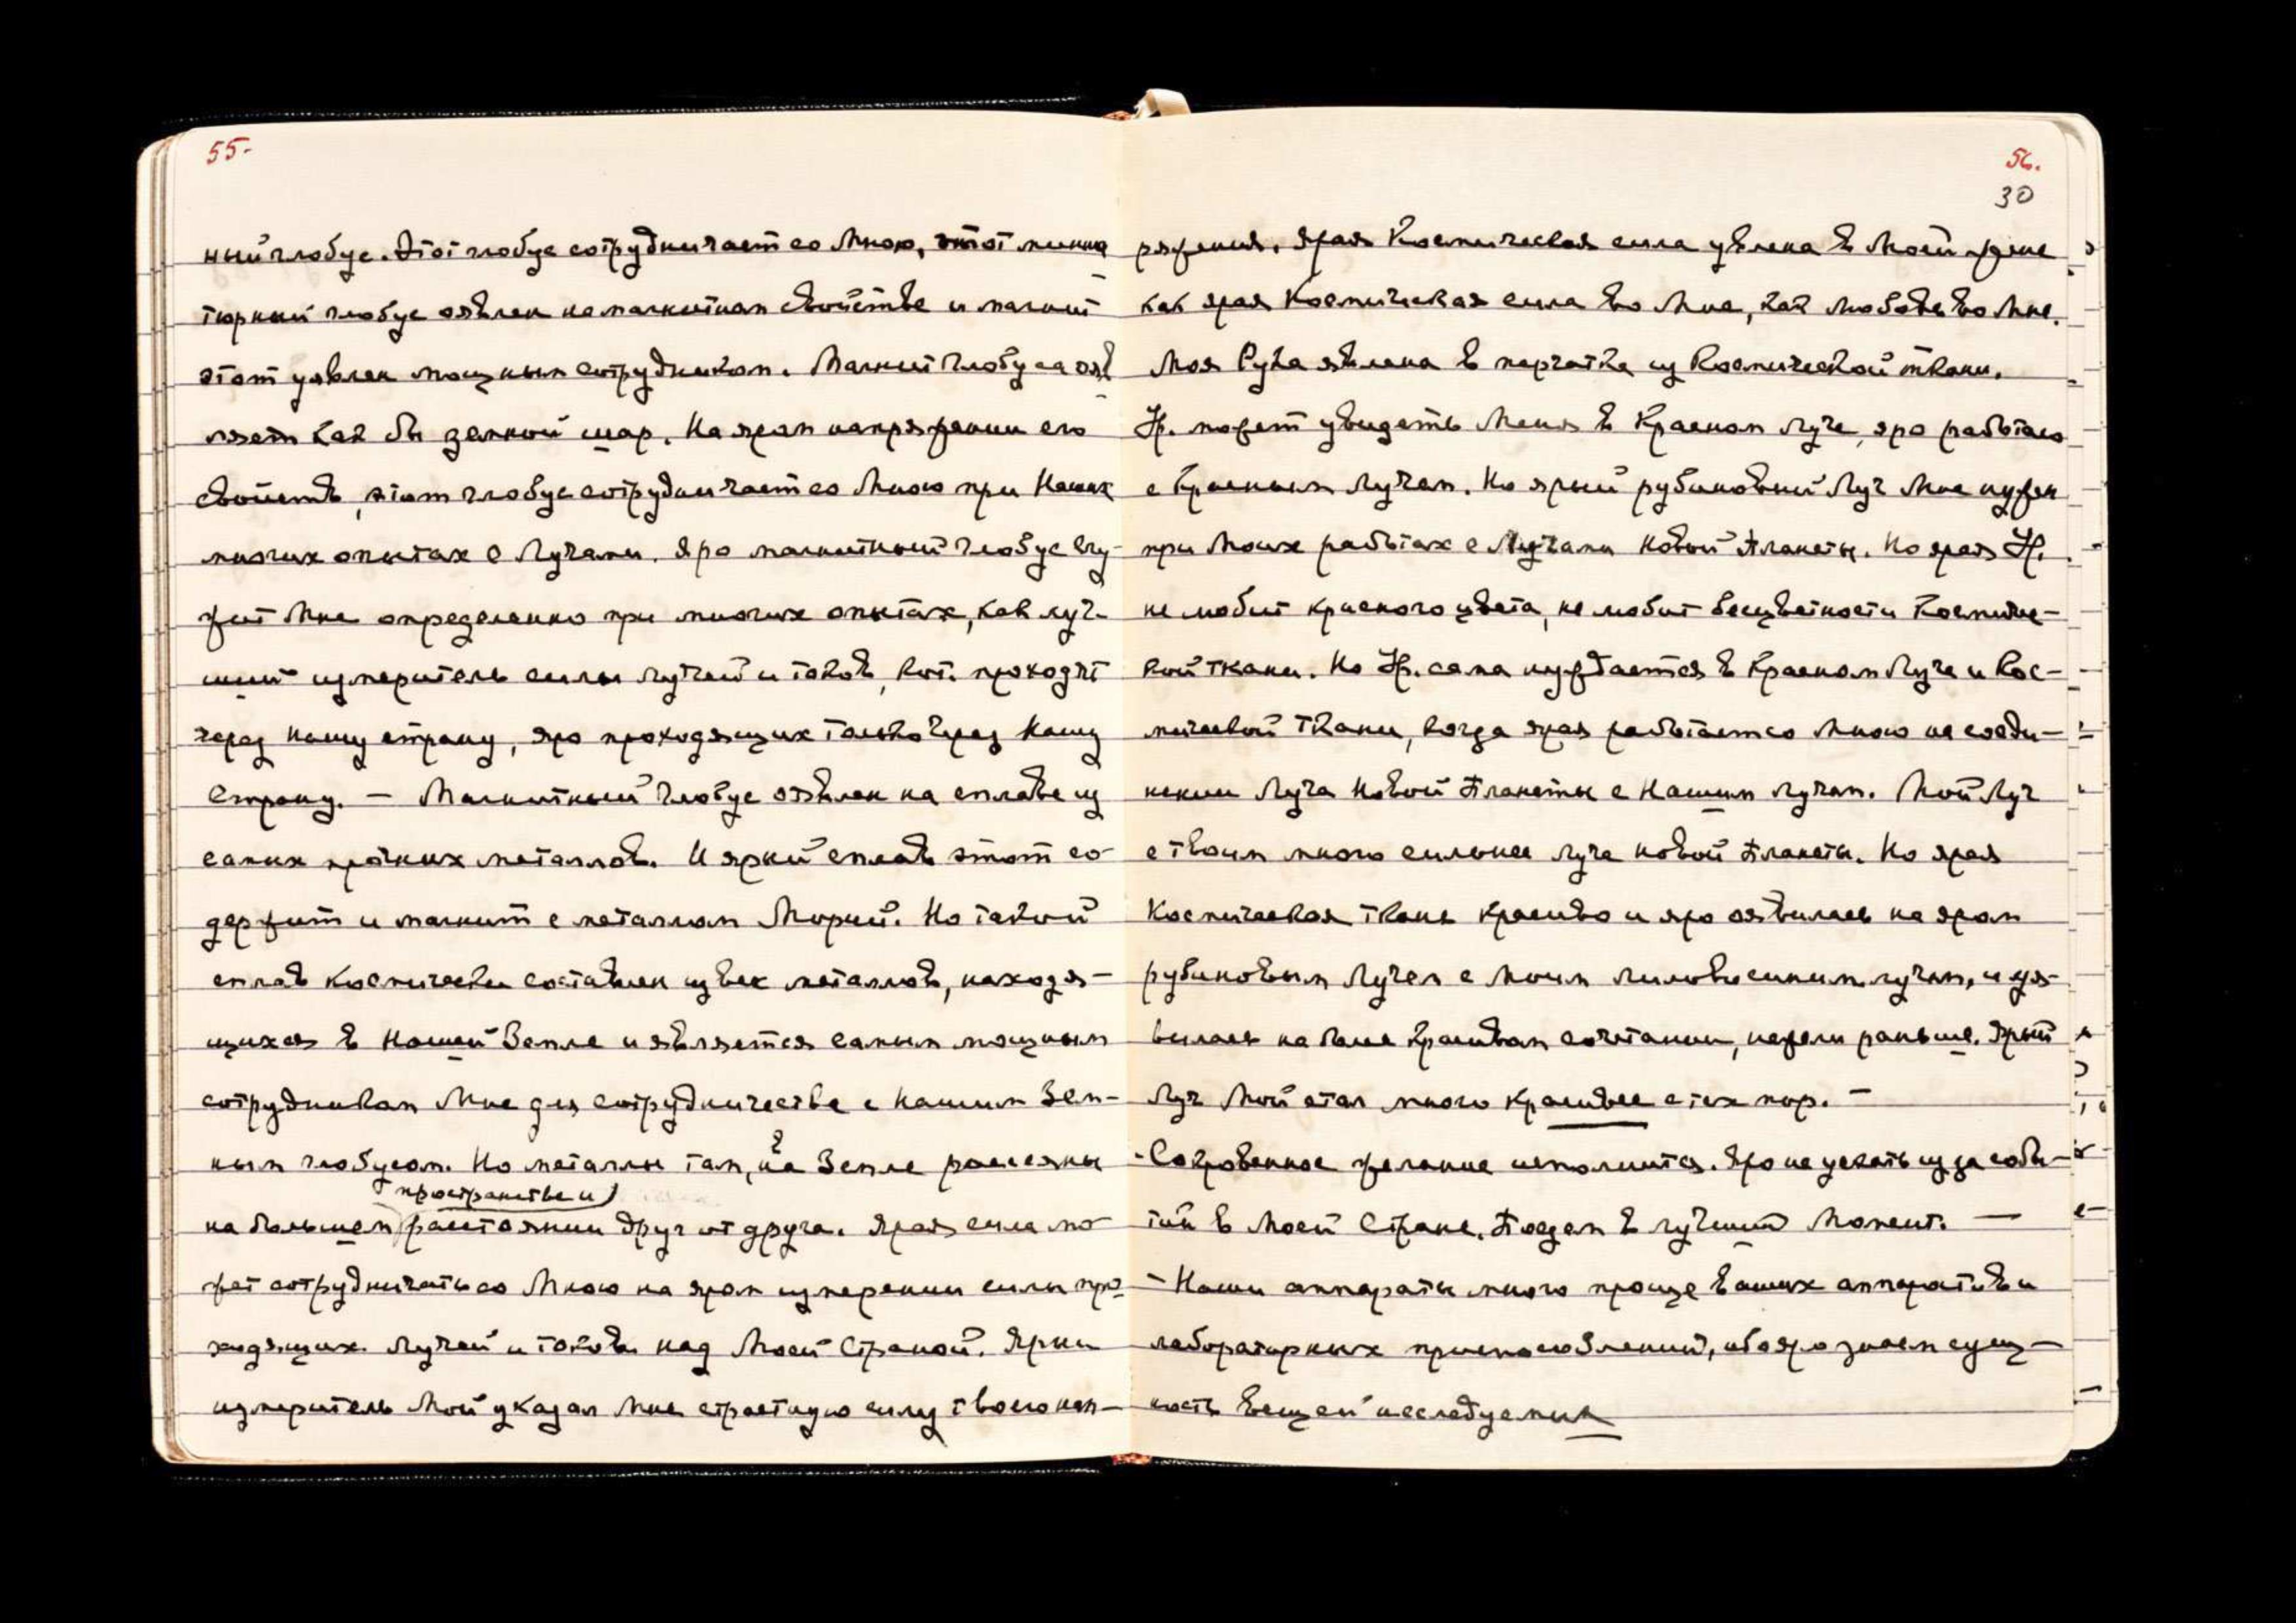 55.
ный глобус. Этот глобус сотрудничает со Мною, этот миниа
тюрный глобус оявлен на магнитном свойстве и магнит
этот уявлен мощным сотрудником. Магнит глобуса явл
ляет как бы земной шар. На яром напряжении его
свойств, этот глобус сотрудничает со Мною при Наших
многих опытах с Лучами. Яро магнитный глобус слу-
жит Мне определенно при многих опытах, как луч-
ший измеритель силы лучей и токов, кот. проходят
через нашу страну, яро проходящих только через Нашу
Страну. — Магнитный Глобус оявлен на сплаве из
самих прочных металлов. И яркий сплав этот со-
держит и магнит с металлом Морий. Но такой
сплав космически составлен из всех металлов, находя-
щихся в Нашей Земле и является самым мощным
сотрудником Мне для сотрудничества с нашим Зем-
ным глобусом. Но металлы там, в на Земле рассеяны
пространстве и
на большем расстоянии друг от друга. Ярая сила мо-
жет сотрудничать со Мною на яром измерении силы про-
ходящих Лучей и токов над Моей Страной. Ярый
измеритель Мой указал Мне страстную силу твоего нап-
56.
30
ряжения. Ярая Космическая сила уявлена в Моей
как ярая Космическая сила во Мне, как любовь во Мне.
Моя Рука явлена в перчатке из Космической ткани.
Ур. может увидеть Меня в Красном Луче, яро работаю
с Красным Лучом. Но ярый рубиновый Луч Мне нужен
при Моих работах с Лучами Новой Планеты. Но ярая Ур.
не любит красного цвета, не любит бесцветности Космиче-
кой ткани. Но Ур. сама нуждается в Красном Луче и Кос-
мической Ткани, когда ярая работает со Мною на соеди-
нении Луча Новой Планеты с Нашим лучом. Мой Луч
с твоим много сильнее луча новой Планеты. Но ярая
Космическая Ткань красиво и яро оявилась на яром
рубиновым Лучом с Моим лилово синим лучом, и уя-
вилась на более красивом сочетании, нежели раньше. Ярый
Луч Мой стал много красивее с тех пор. —
- Сокровенное желание исполнится. Яро не уехать из за собы-
тий в Моей Стране. Поедем в лучший Момент. —
— Наши аппараты много проще Ваших аппаратов и
лабораторных приспособлений, ибо яро знаем сущ-
ность Вещей исследуемых